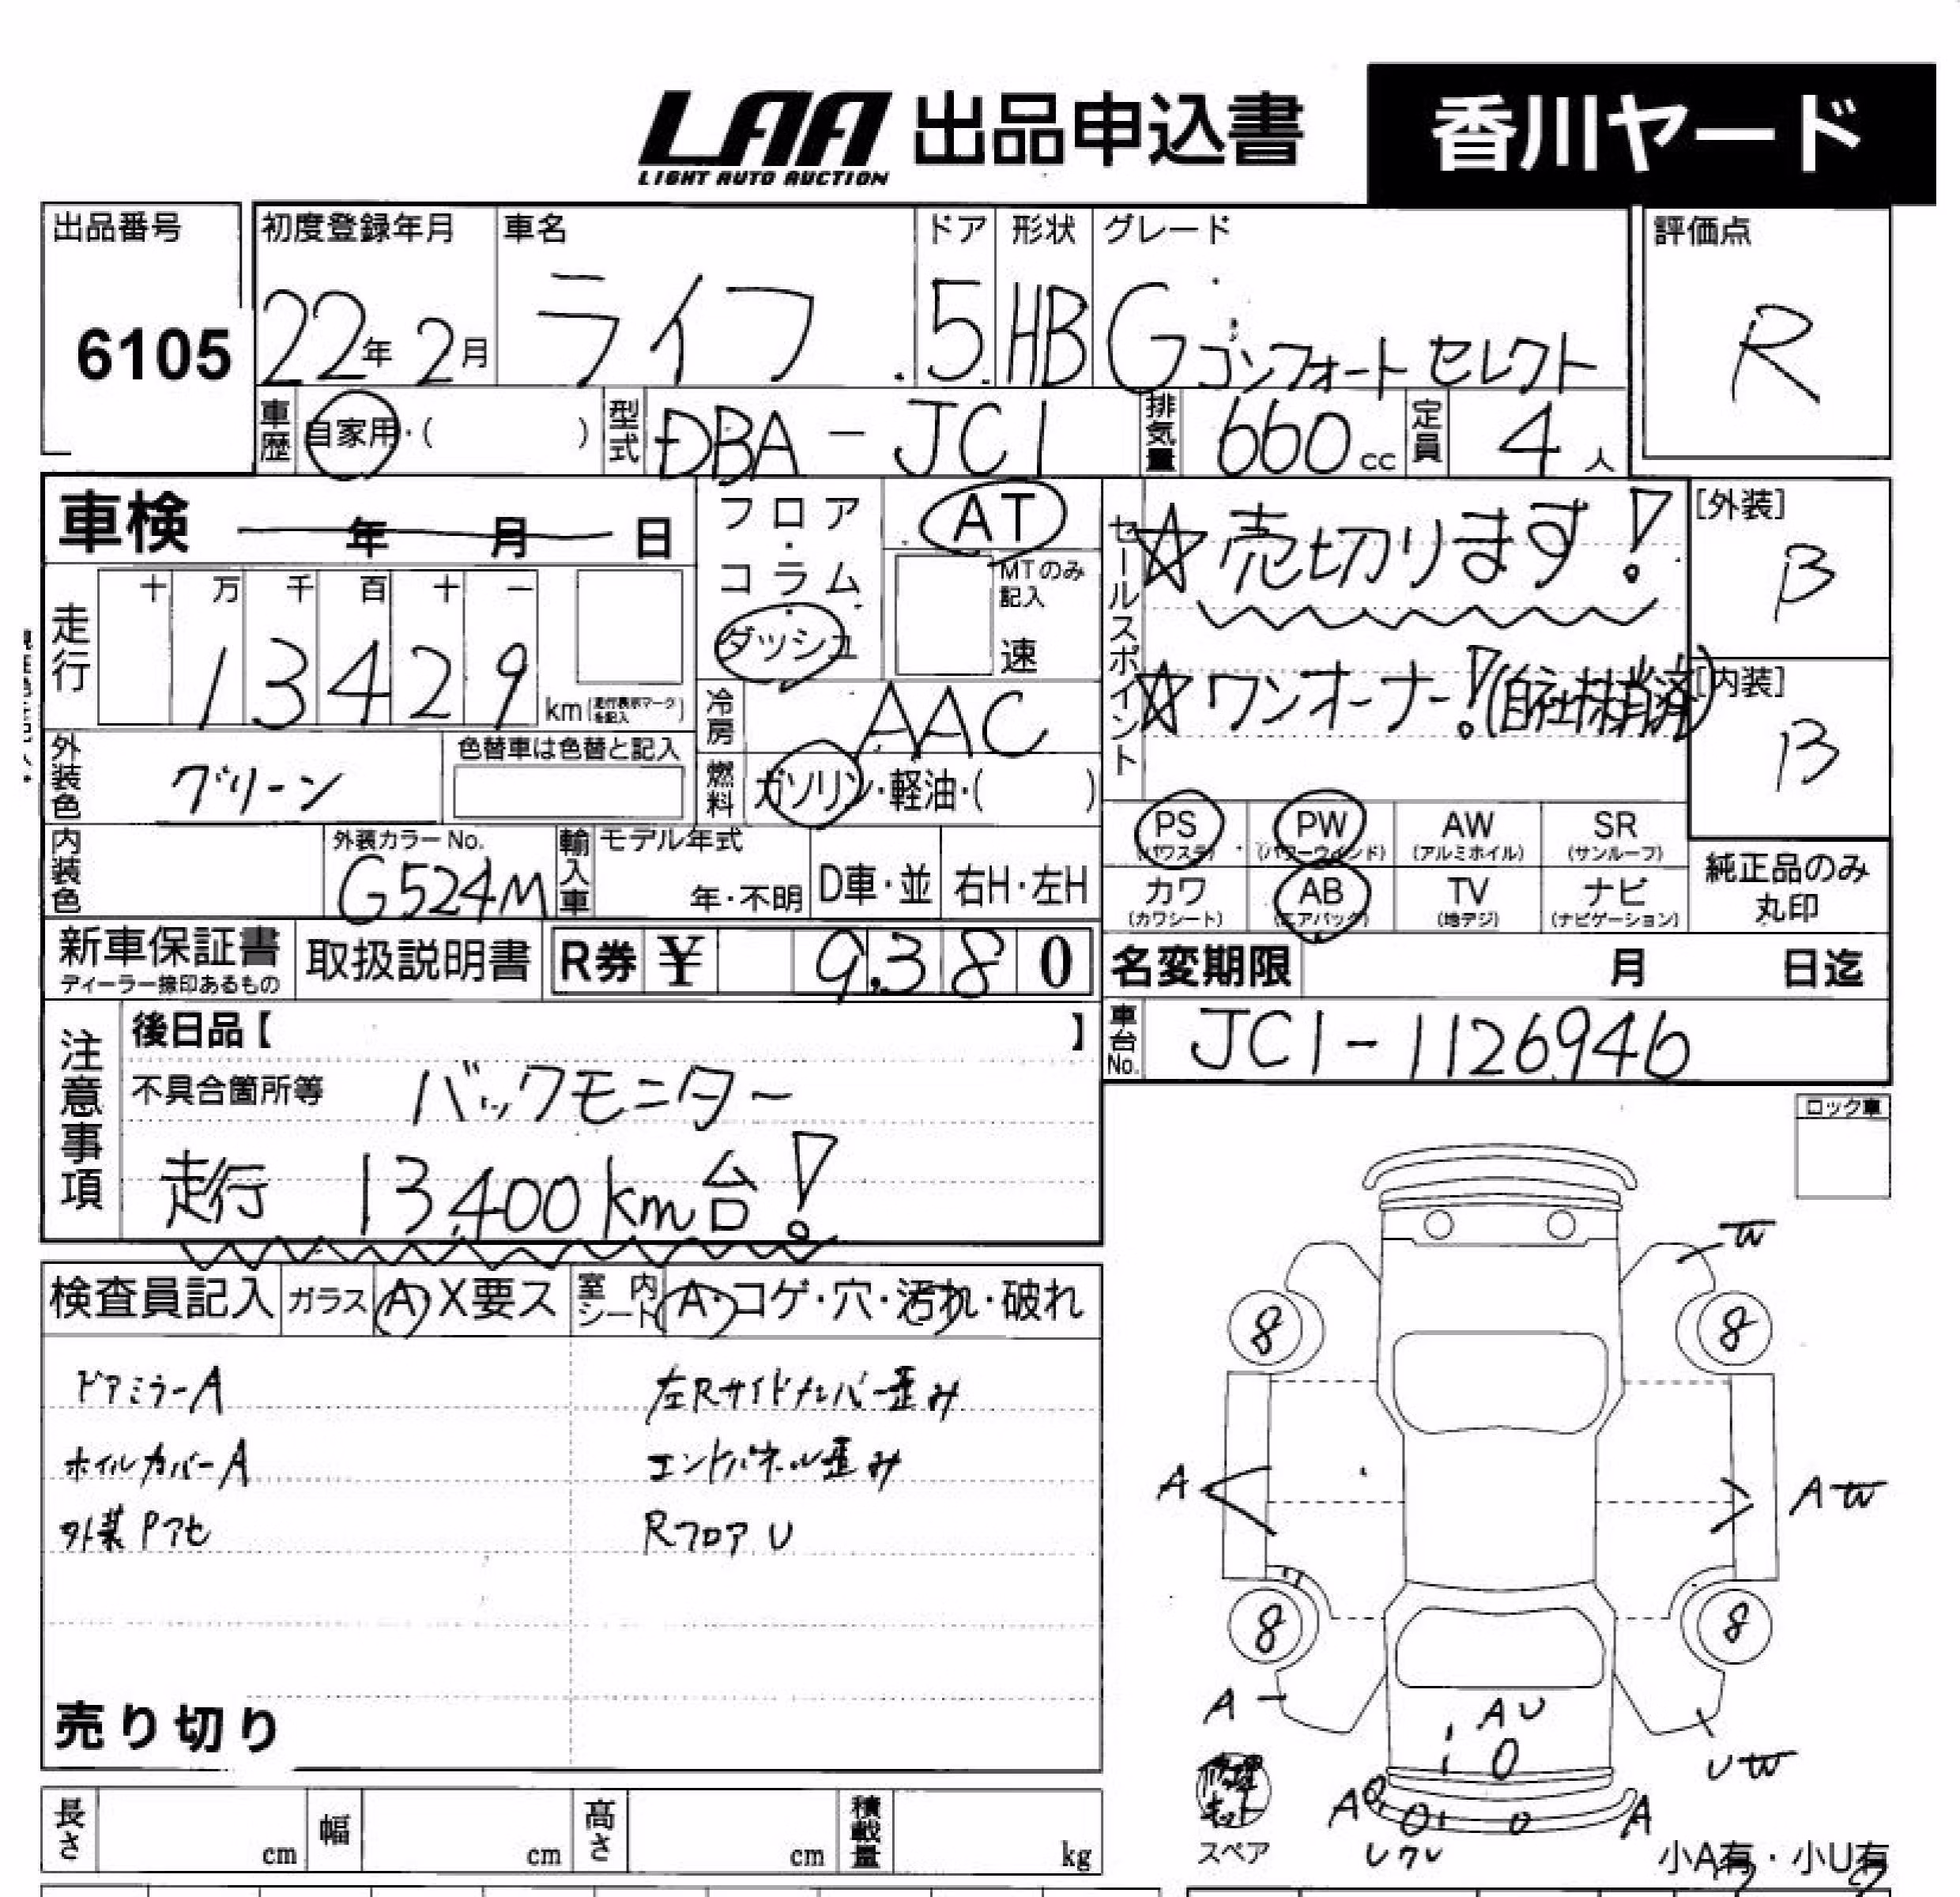 LAA 出品申込書 香川ヤード
LIGHT AUTO AUCTION
出品番号 初度登録年月 車名 ドア 形状 グレード 評価点
6105 22年 2月 ライフ 5 HB G コンフォートセレクト R
車歴 自家用・( ) 型式 DBA-JC1 排気量 660cc 定員 4人
車検 年 月 日 フロア・コラム・ダッシュ AT MTのみ記入 速
セールスポイント ☆売切ります! [外装] B
走行 十 万 千 百 十 一
13429 km(走行表示マークを記入)
☆ワンオーナー!(自社抹消済) [内装] B
冷房 AAC
外装色 グリーン 色替車は色替と記入 燃料 ガソリン・軽油・( )
PS(パワステ) PW(パワーウインド) AW(アルミホイル) SR(サンルーフ)
内装色 外装カラーNo. G524M 輸入車 モデル年式 年・不明 D車・並 右H・左H
カワ(カワシート) AB(エアバック) TV(地デジ) ナビ(ナビゲーション) 純正品のみ丸印
新車保証書 ディーラー捺印あるもの 取扱説明書 R券 ¥ 9,380 名変期限 月 日迄
注意事項 後日品【 】 車台No. JC1-1126946
不具合箇所等 バックモニター
走行 13,400km台!
ロック車
検査員記入 ガラス A X要ス 室内シート A・コゲ・穴・汚れ・破れ
ドアミラーA 左Rサイドメンバー歪み
ホイルカバーA エンドパネル歪み
外装Pアセ RフロアU
売り切り
W
8 8
A AW
8 8
A AU UW
修理キット A A
スペア 小A有・小U有
長さ cm 幅 cm 高さ cm 積載量 kg